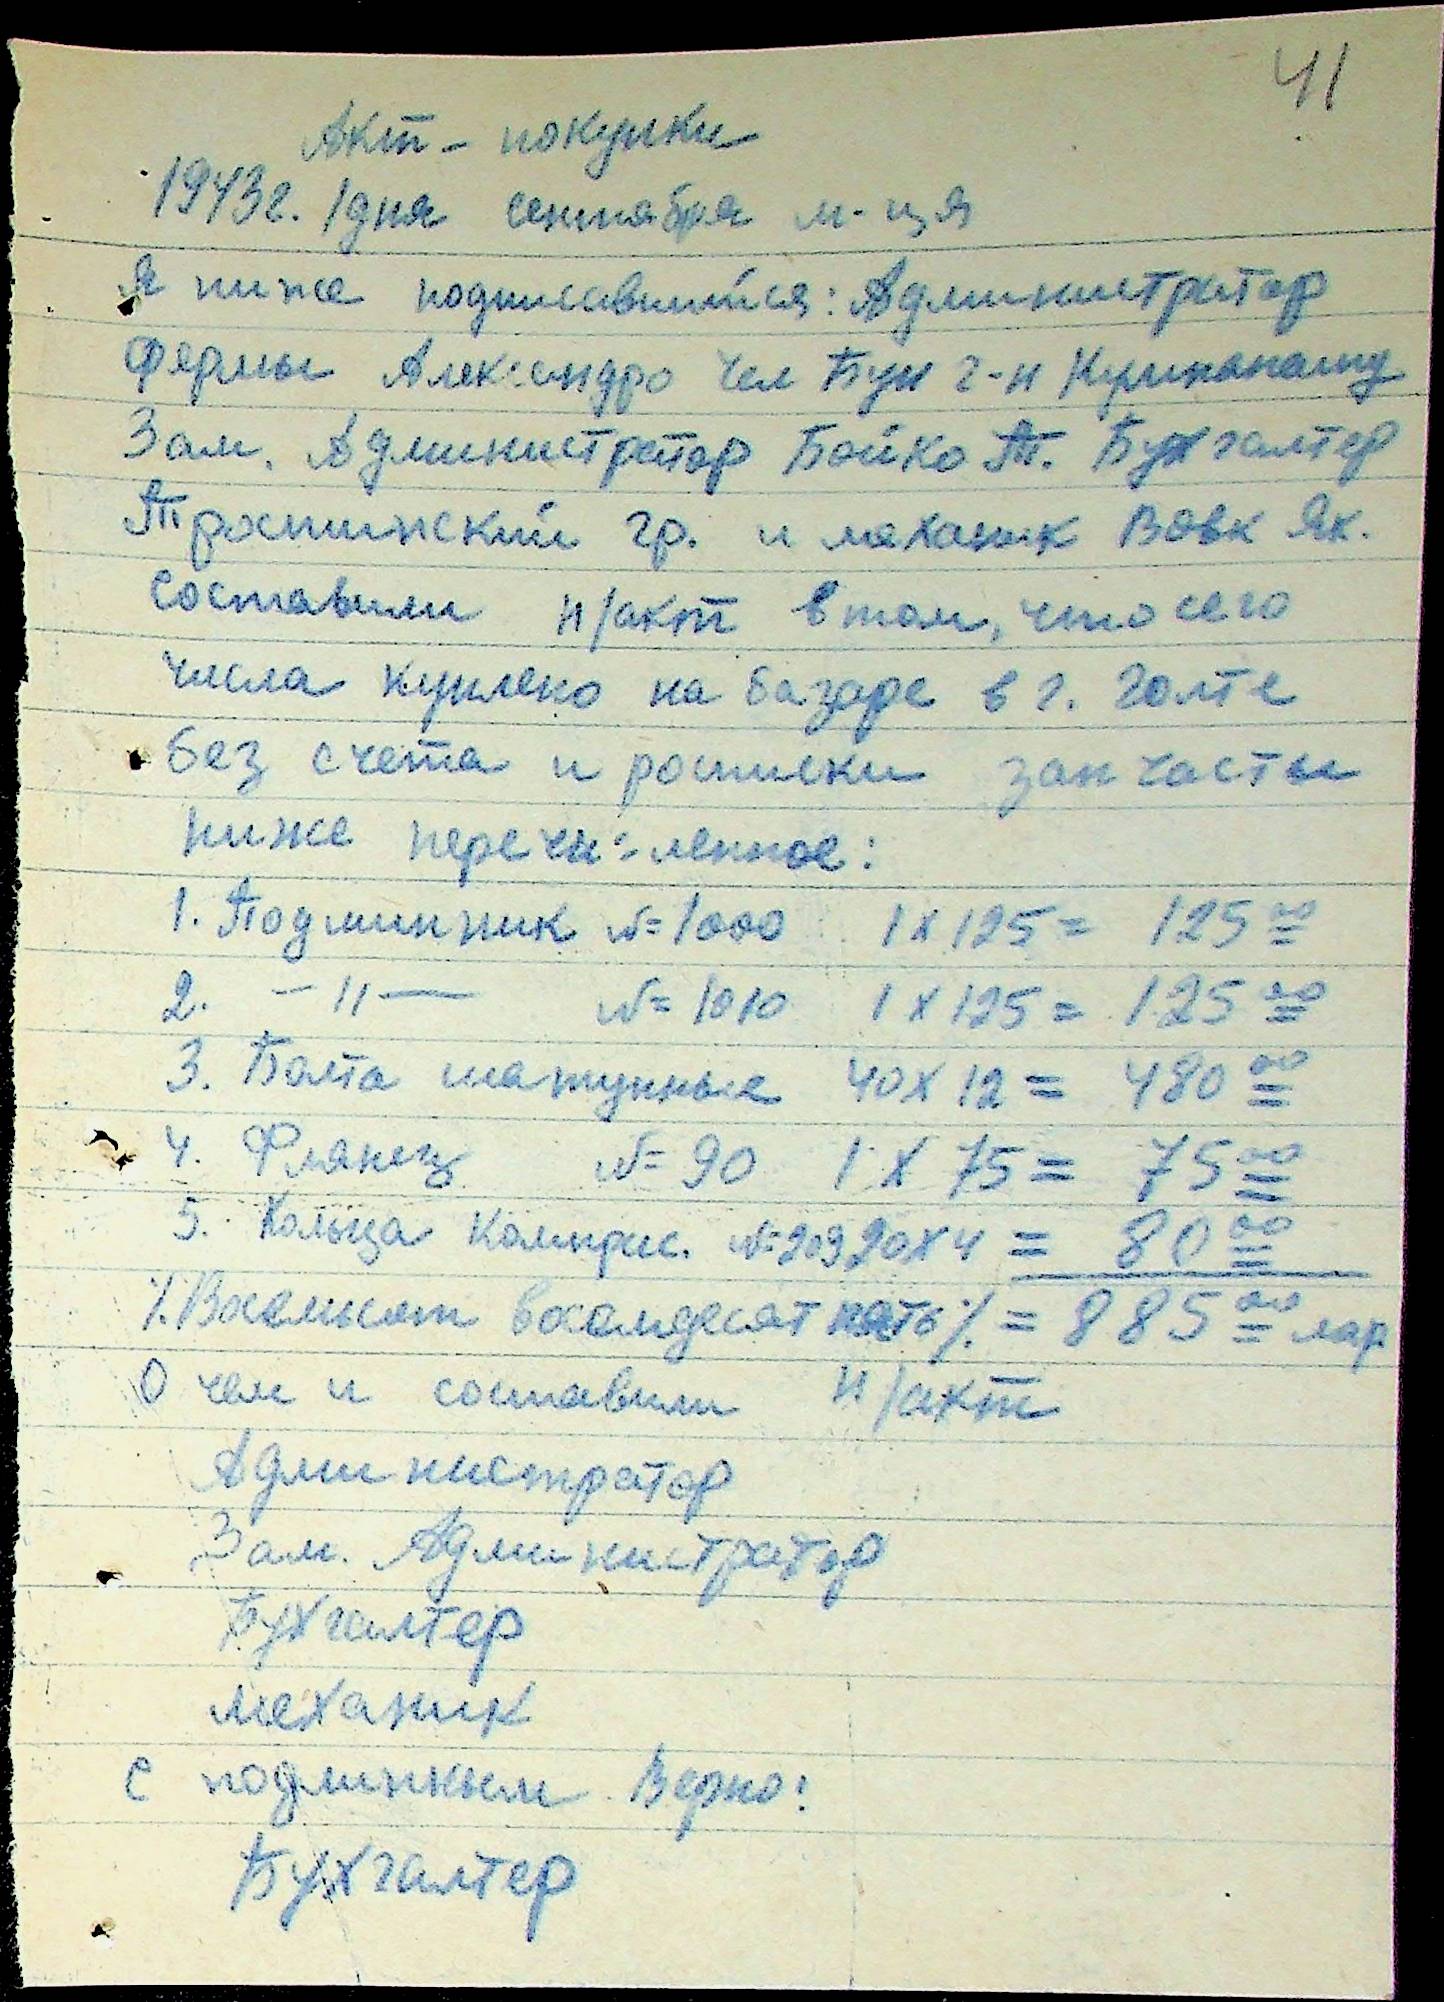 41
Акт - покупки
1943г. 1 дня сентября м-ця
Я ниже подписавшийся: Администратор
Фермы Александро чел Бун г-н
Зам. Администратор Бойко Т. Бухгалтер
Тростинский Гр. и механик Вовк Як.
составили н/акт в том, что сего
числа куплено на базаре в г. Голте
без счета и росписки запчасты
ниже перечи-ленное:
1. Подшипник №=1000 1х125= 125 00
2. -"- №=1010 1х125= 125 00
3. Болта шатунные 40х12= 480 00
4. Флянец №=90 1х75= 75 00
5. Кольца Компрес. №=209 20х4= 80 00
%Восемьсот восемдесят пять% = 885 00 лар
О чем и составили н/акт
Администратор
Зам. Администратор
Бухгалтер
механик
С подлинным Верно:
Бухгалтер